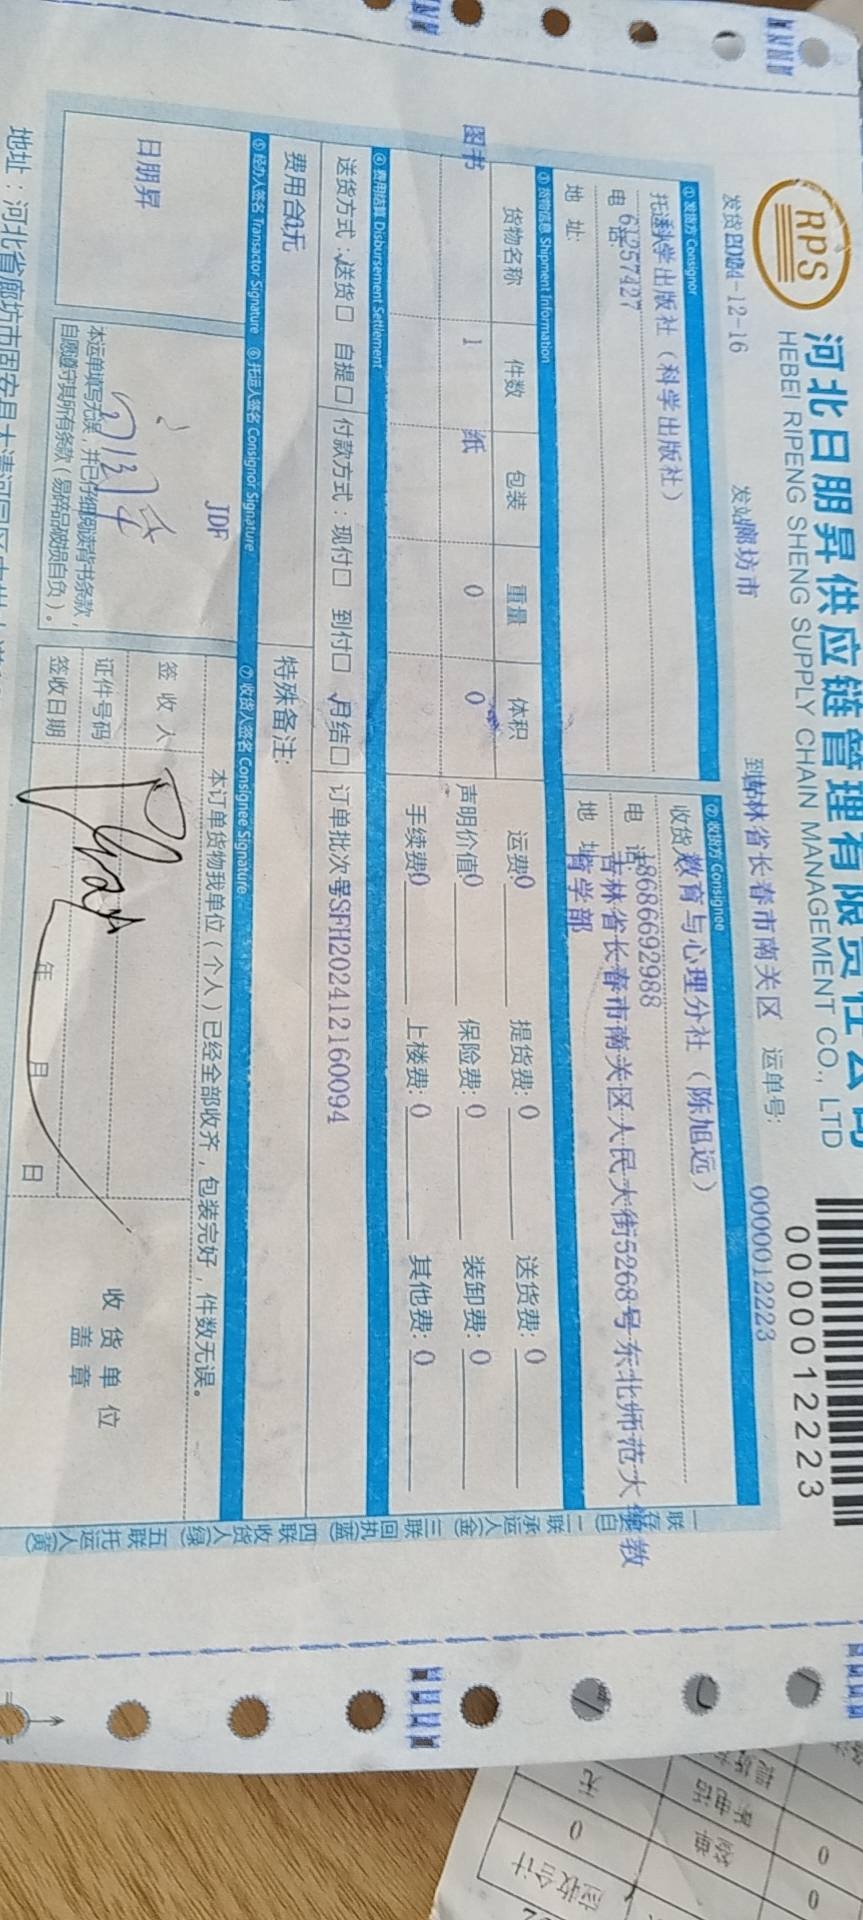 RPS
河北日朋昇供应链管理有限责任公司
HEBEI RIPENG SHENG SUPPLY CHAIN MANAGEMENT CO., LTD
0000012223
发货 2024-12-16
发站 廊坊市
到站 吉林省长春市南关区
运单号:
0000012223
① 发货方 Consignor
托运人 科学出版社(科学出版社)
电话 61257427
地 址:
② 收货方 Consignee
收货人 教育与心理分社(陈旭远)
电 话 18686692988
地 址 吉林省长春市南关区人民大街5268号东北师范大学教育学部
③ 货物信息 Shipment Information
货物名称 件数 包装 重量 体积
图书 1 纸 0 0
运费 0 提货费: 0 送货费: 0
声明价值 0 保险费: 0 装卸费: 0
手续费 0 上楼费: 0 其他费: 0
④ 费用结算 Disbursement Settlement
送货方式:送货□ 自提□ 付款方式:现付□ 到付□ 月结□ 订单批次号 SFH202412160094
费用合计 0元
特殊备注:
⑤ 经办人签名 Transactor Signature ⑥ 托运人签名 Consignor Signature ⑦ 收货人签名 Consignee Signature
日朋昇
JDF
本运单填写无误,并已仔细阅读背书条款,
自愿遵守其所有条款(易碎品破损自负)。
本订单货物我单位(个人)已经全部收齐,包装完好,件数无误。
签 收 人
证件号码
签收日期 年 月 日
收货单位
盖 章
一联 存根(白) 二联 承运人(金) 三联 回执(蓝) 四联 收货人(绿) 五联 托运人(黄)
地址:河北省廊坊市固安县大清河园区
无 0 应收合计
0 0